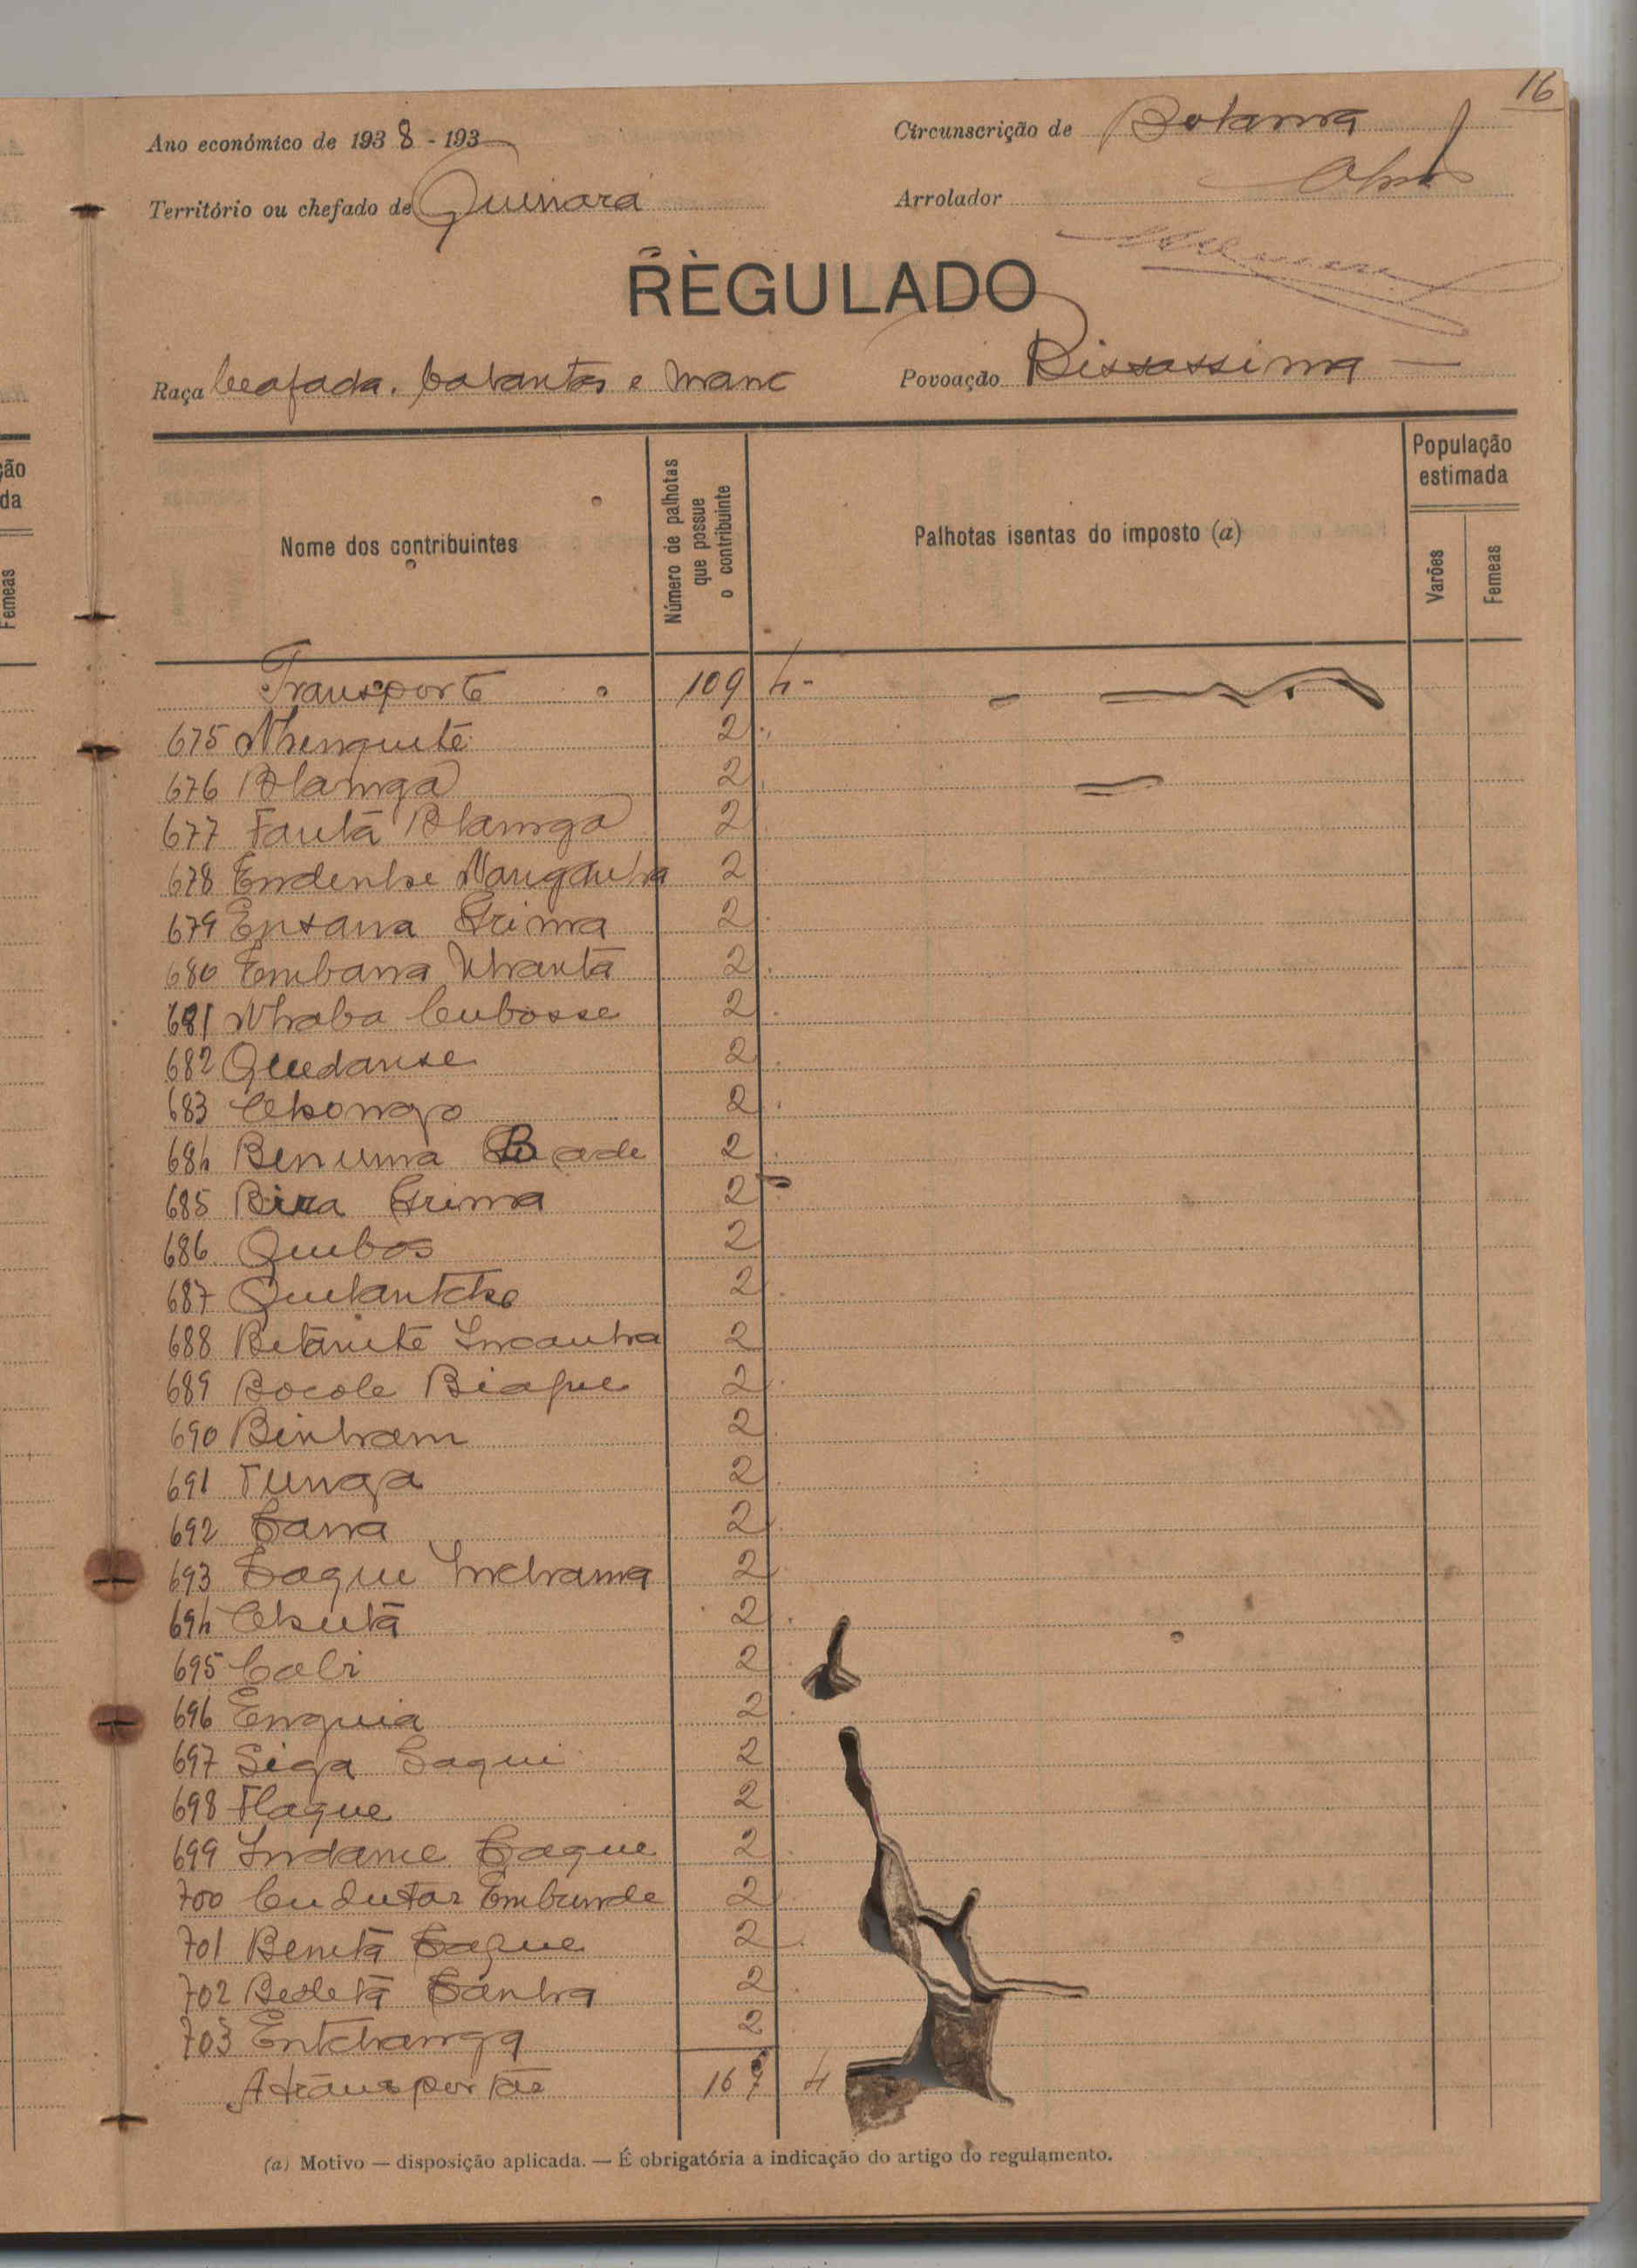 16
Ano económico de 1938 - 193
Circunscrição de Bolama
Território ou chefado de Quinará
Arrolador
REGULADO
Raça beafada, balantas e manc
Povoação Bissassima
Nome dos contribuintes
Número de palhotas que possue o contribuinte
Palhotas isentas do imposto (a)
População estimada
Varões
Femeas
Transporte 109 4
675 Nhenquete 2
676 Blanga 2
677 Fantā Blanga 2
678 Endenhe 2
679 Ensana 2
680 Embana Nhantā 2
681 Nhaba Cubosse 2
682 Quedanse 2
683 Chongo 2
684 Benuma 2
685 2
686 Quibos 2
687 2
688 2
689 Bocole Biague 2
690 Binham 2
691 Tunga 2
692 Sana 2
693 Saque 2
694 Chutā 2
695 2
696 Enquia 2
697 Siga Saqui 2
698 Flaque 2
699 Indame Saque 2
700 Embunde 2
701 2
702 Sanha 2
703 Entchanga 2
A transportar 167 4
(a) Motivo — disposição aplicada. — É obrigatória a indicação do artigo do regulamento.
ção
da
Femeas